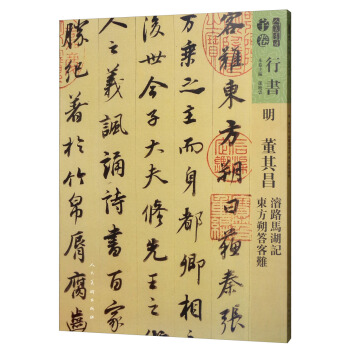 行書
明
董其昌
濬路馬湖記
東方朔答客難
客難東方朔曰蘇秦張
万乘之主而身都卿相
後世今子大夫修先王
人之義諷誦詩書百家
勝紀著於竹帛脣腐齒
人民美術出版社